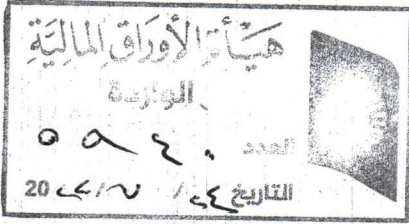 هيأة الأوراق المالية
الواردة
العدد ٥٩٤٠
التاريخ ٢٤ / ٧ / 20٢٢